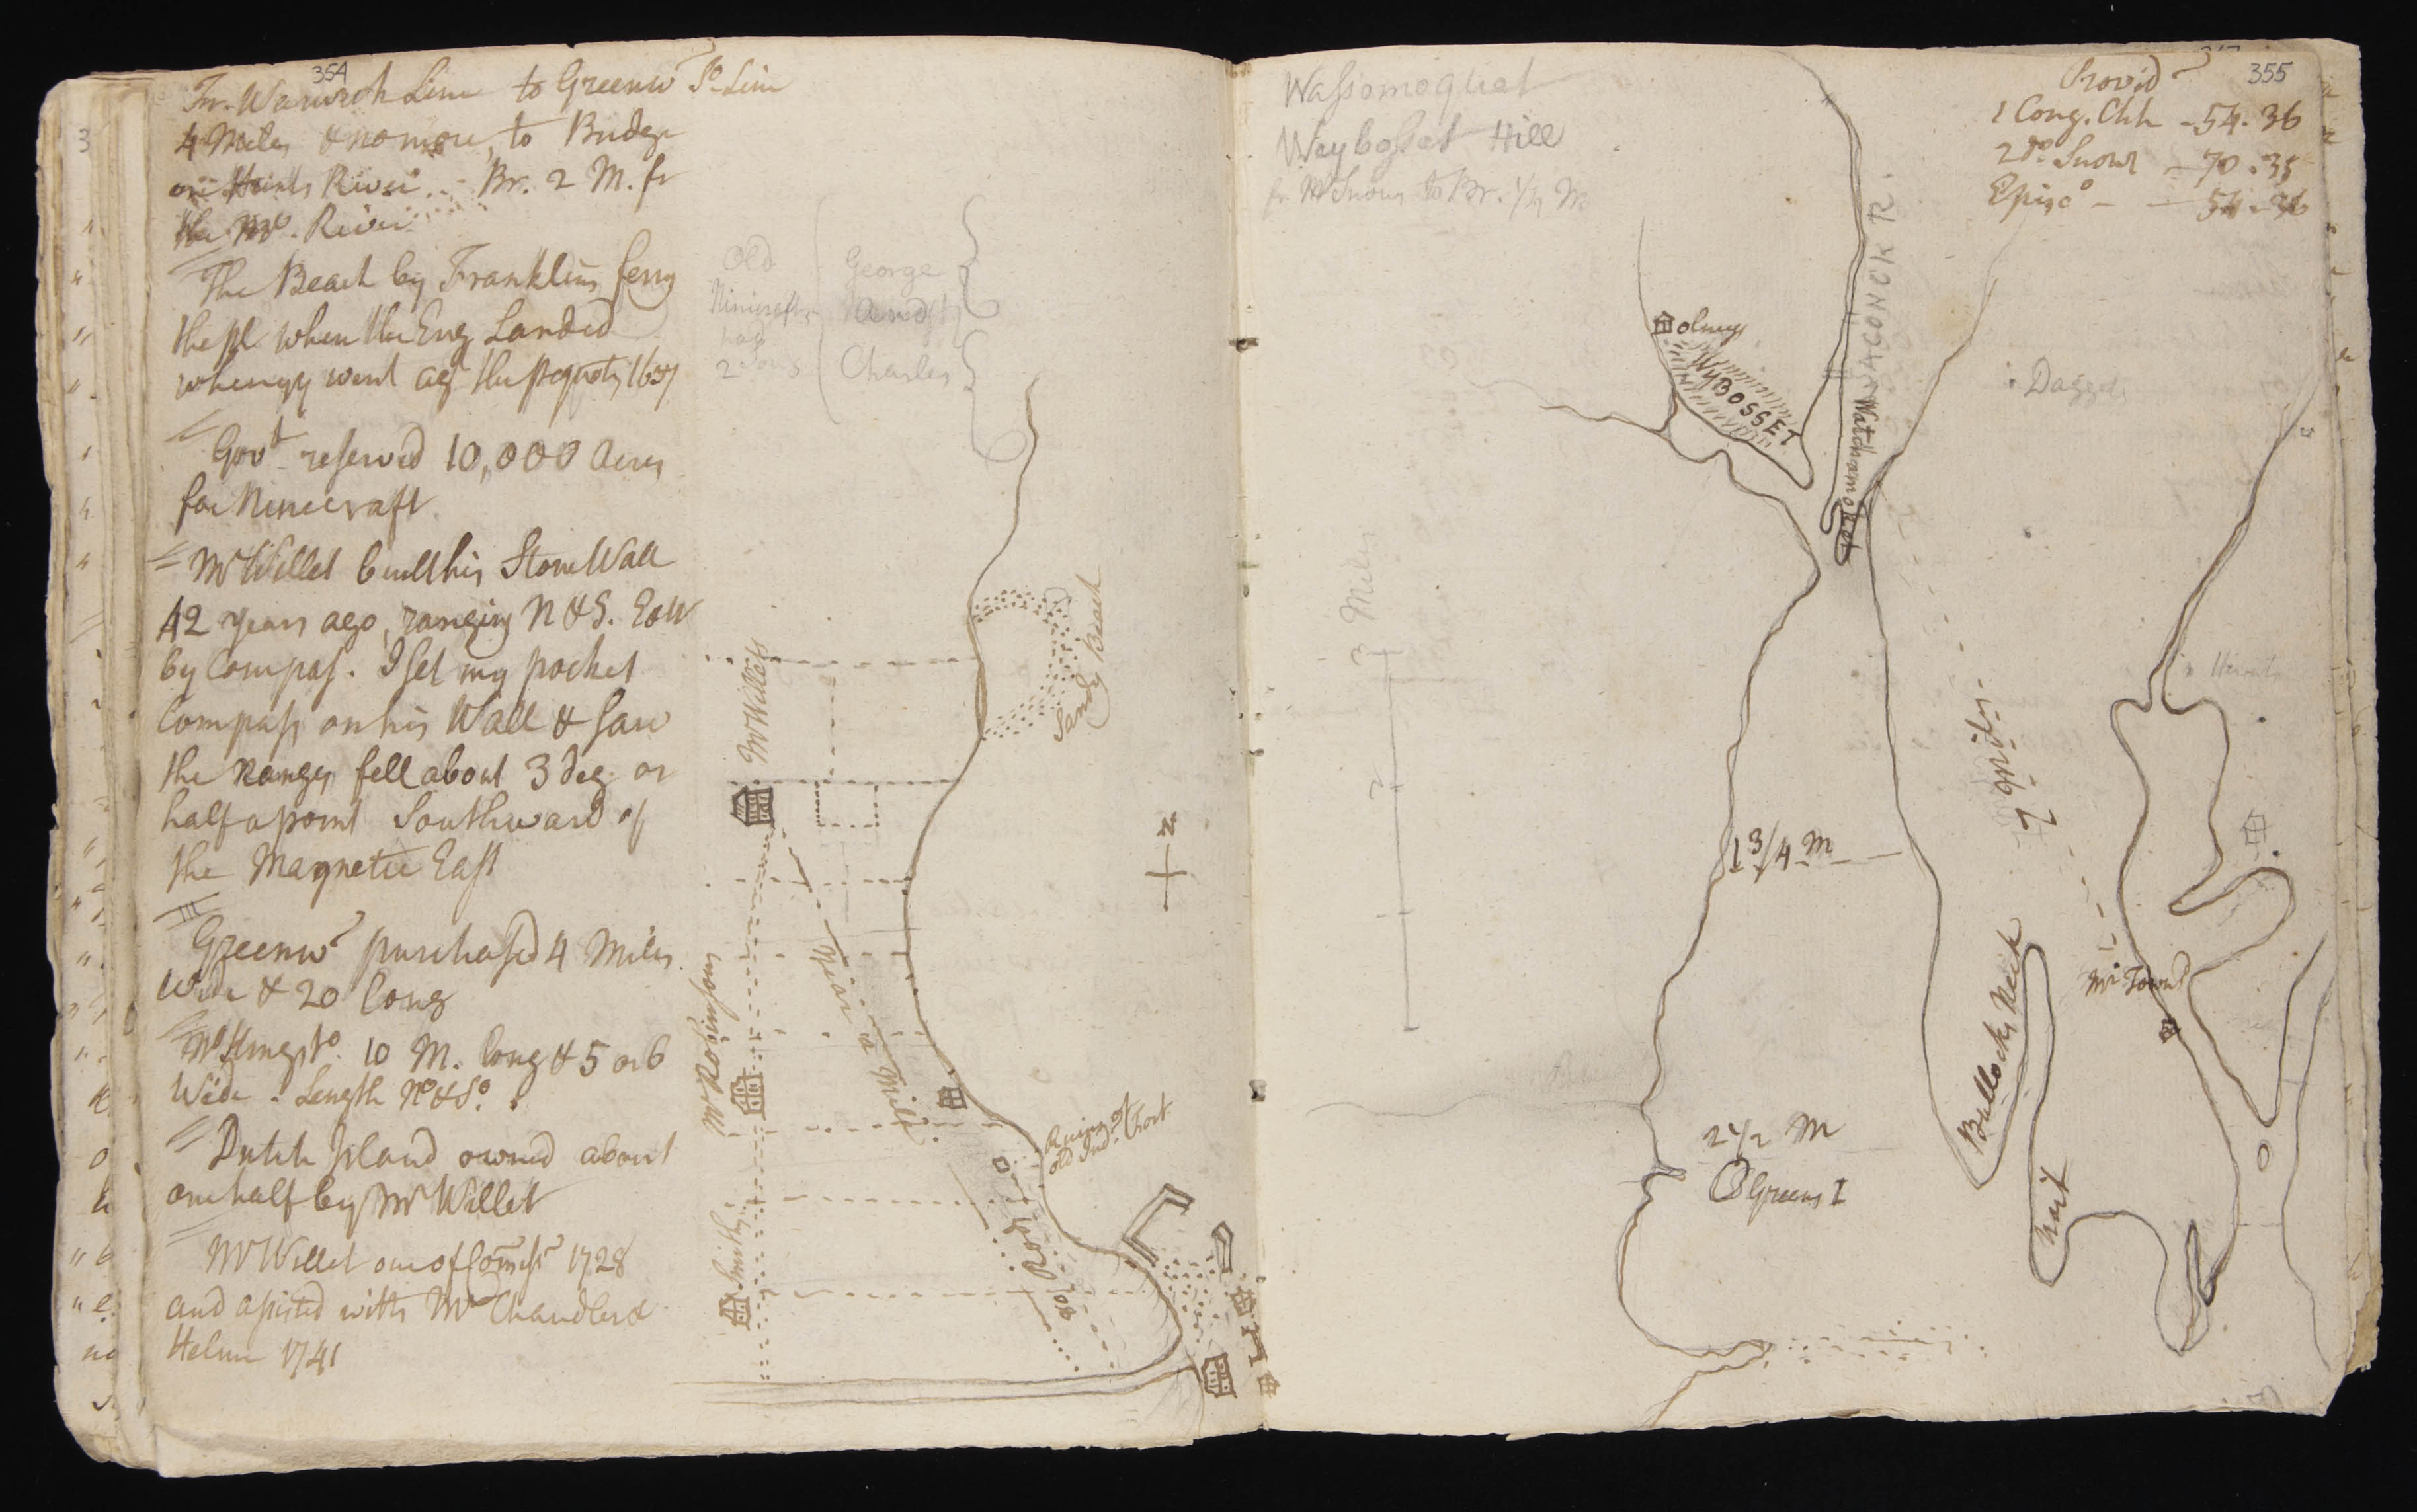 354
Fr. Warwick Line to Greenw. So. Line
4 Miles & no more, to Bridge
on Hunts River. Br. 2 M. fr
the No. River
The Beach by Franklins ferry
the pl. where the Eng. Landed
when yy went agt the Pequots 1637
Govt reserved 10,000 Acres
for Ninecraft
Mr Willet built his Stone Wall
42 years ago, ranging N & S. E & W
by Compass. I set my pocket
Compass on his Wall & saw
the Ranges fell about 3 deg. or
half a point Southward of
the Magnetic East
Greenwd purchased 4 Miles
Wide & 20 long
No Kingsto. 10 M. long & 5 or 6
Wide. Length No & So.
Dutch Island owned about
one half by Mr Willet
Mr Willet one of Comissrs 1728
and assisted with Mr Chandler &
Helme 1741
Old
Ninicrafts
had
2 sons
George
Charles
Sandy Beach
Mr Willets
N
Mr Robinsons
Mr Smiths
Ruins of
old Ind. Fort
80 Rod
355
Wassomoquet
Waybosset Hill
fr. Mr Snows to Br. 1/4 M
Provid
1 Cong. Chh - 54. 36
2do Snows - 70. 35
Episc - - 54. 36
Olneys
WYBOSSET
Watchamoket
Dagget
3 Miles
2
1 3/4 M
Bullocks Neck
Mr Towns
2 1/2 M
Greens I